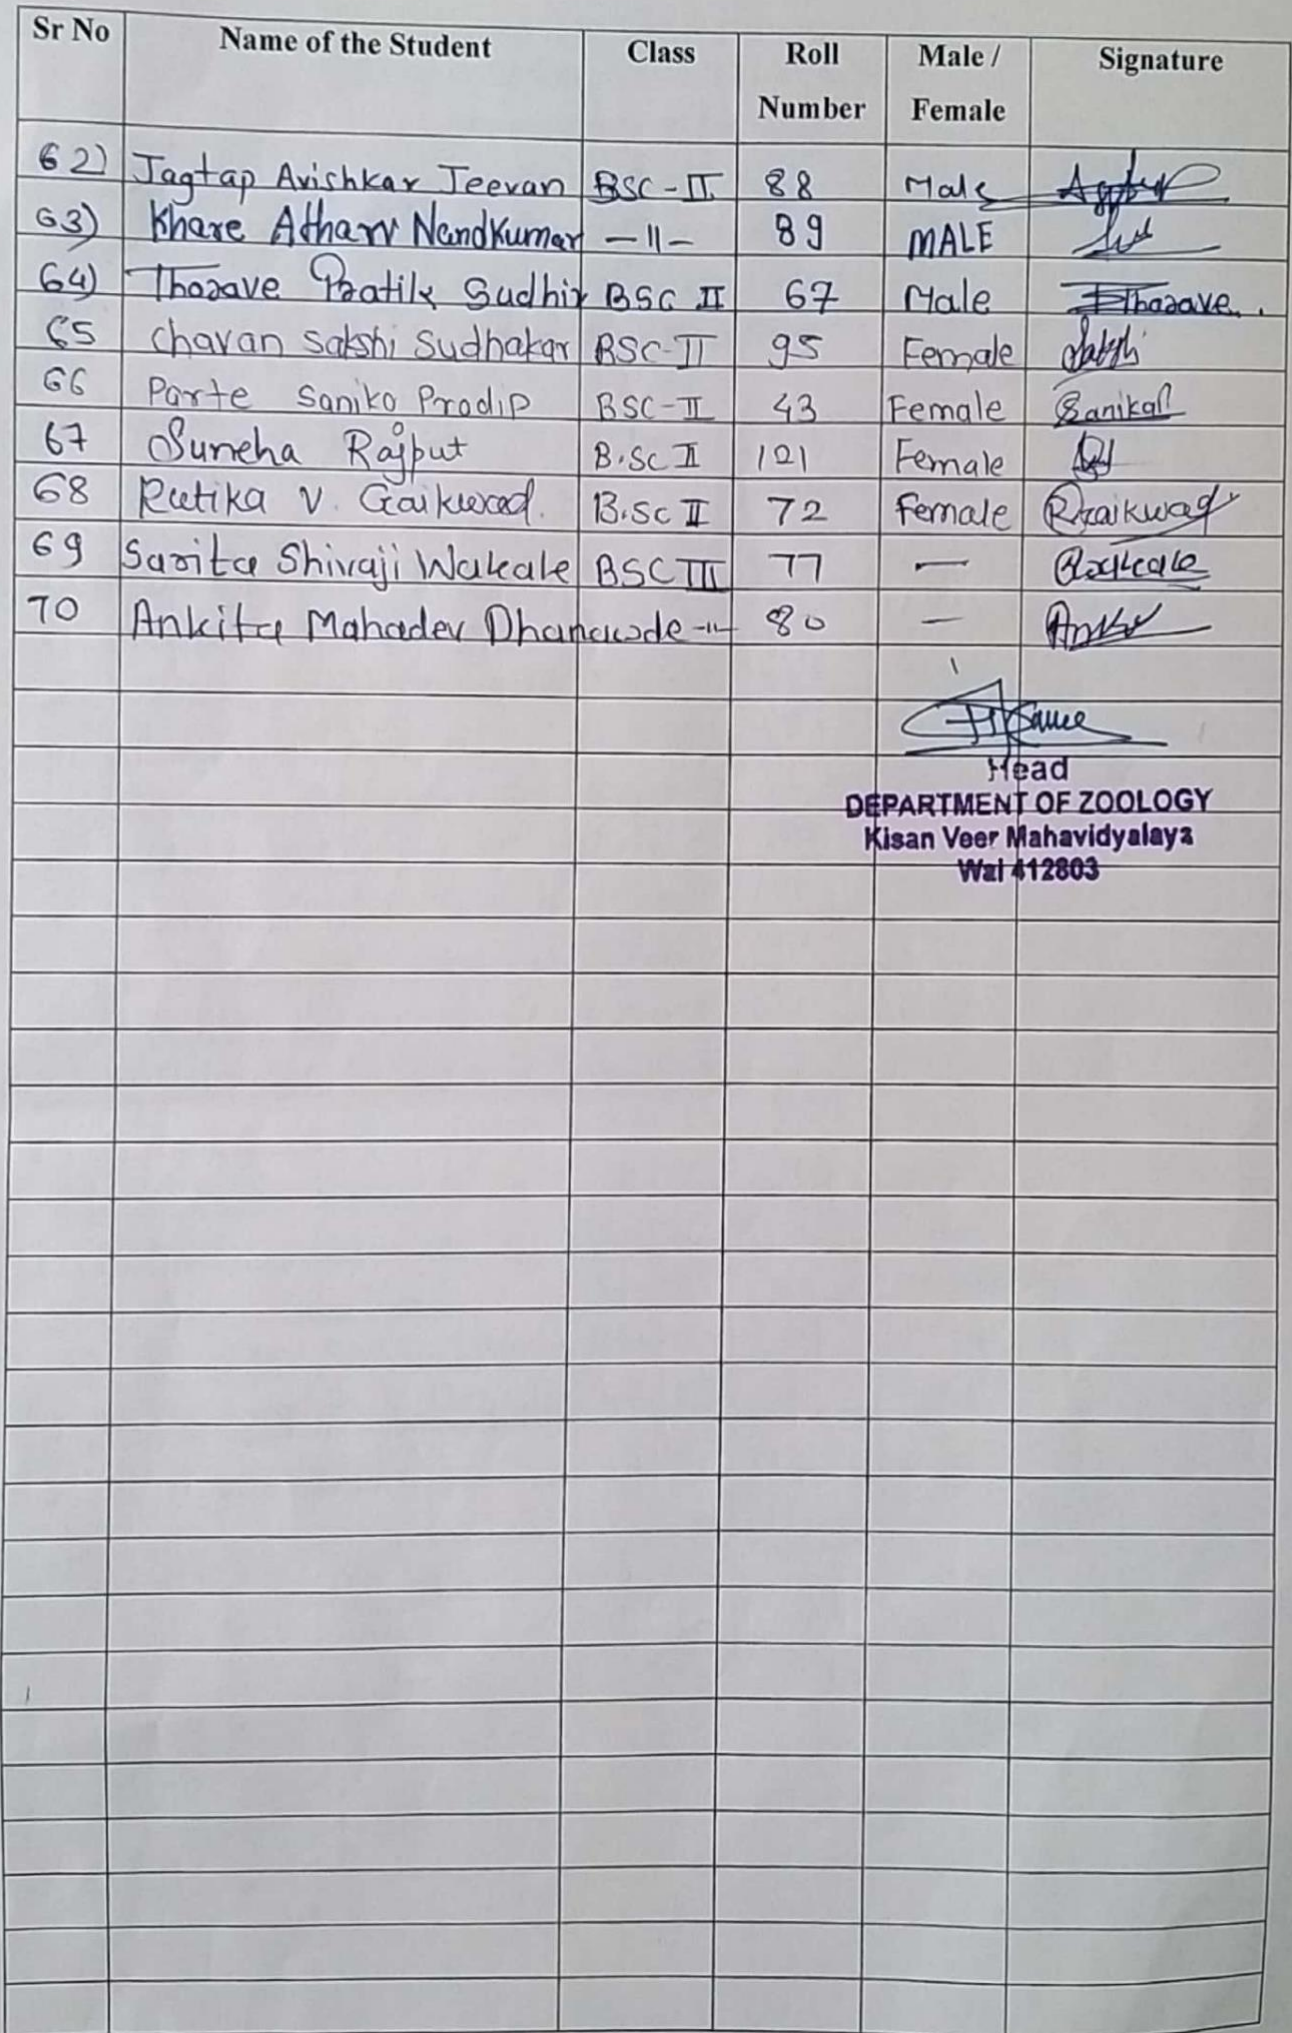 Sr No Name of the Student Class Roll Number Male / Female Signature
62) Jagtap Avishkar Jeevan BSC-II 88 Male
63) Khare Atharv Nandkumar —11— 89 MALE
64) Thorave Pratik Sudhir BSC II 67 Male Thorave.
65 Chavan Sakshi Sudhakar BSC-II 95 Female Sakshi
66 Parte Sanika Pradip BSC-II 43 Female Sanika
67 Suneha Rajput B.Sc II 121 Female
68 Rutika V. Gaikwad. B.Sc II 72 Female RGaikwad
69 Sarita Shivaji Wakale BSC III 77 — Wakale
70 Ankita Mahadev Dhanawde -11- 80 —
Head
DEPARTMENT OF ZOOLOGY
Kisan Veer Mahavidyalaya
Wai 412803